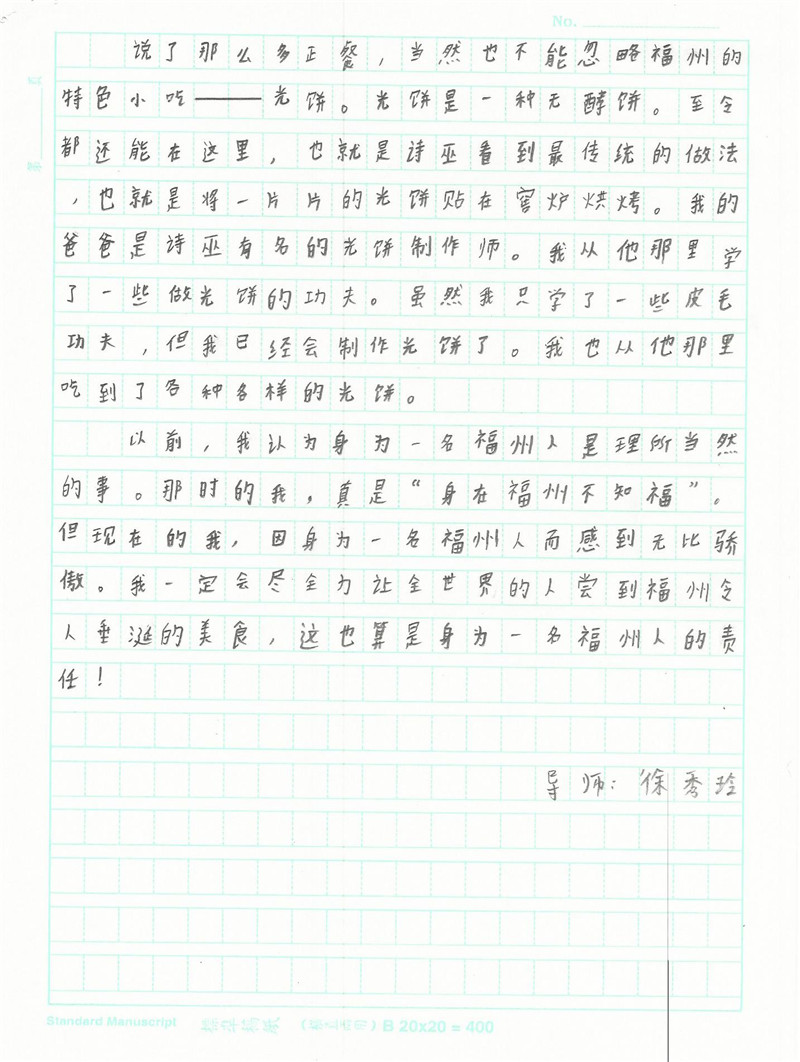 No.
第 页
说了那么多正餐，当然也不能忽略福州的
特色小吃——光饼。光饼是一种无酵饼。至今
都还能在这里，也就是诗巫看到最传统的做法
，也就是将一片片的光饼贴在窑炉烘烤。我的
爸爸是诗巫有名的光饼制作师。我从他那里学
了一些做光饼的功夫。虽然我只学了一些皮毛
功夫，但我已经会制作光饼了。我也从他那里
吃到了各种各样的光饼。
以前，我认为身为一名福州人是理所当然
的事。那时的我，真是“身在福州不知福”。
但现在的我，因身为一名福州人而感到无比骄
傲。我一定会尽全力让全世界的人尝到福州令
人垂涎的美食，这也算是身为一名福州人的责
任！
导师：徐秀玲
Standard Manuscript B 20x20 = 400